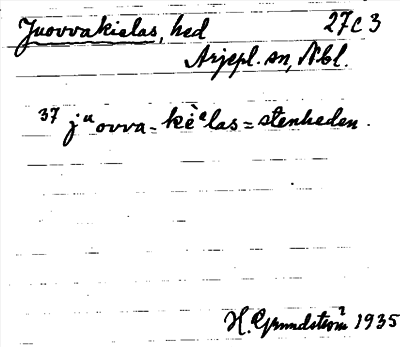 Juovvakielas, hed 27c3
Arjepl. sn, Nbl.
37 jᵘovva=kèᵉlas=stenheden.
H. Grundström 1935